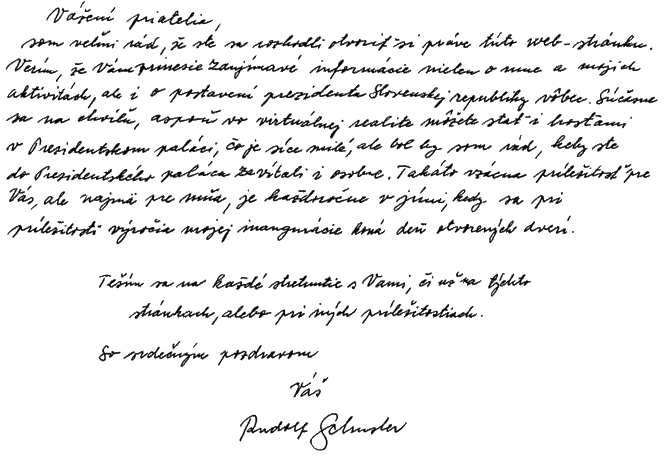 Vážení priatelia,
som veľmi rád, že ste sa rozhodli otvoriť si práve túto web-stránku.
Verím, že Vám prinesie zaujímavé informácie nielen o mne a mojich
aktivitách, ale i o postavení prezidenta Slovenskej republiky vôbec. Súčasne
sa na chvíľu, aspoň vo virtuálnej realite môžete stať i hosťami
v Prezidentskom paláci, čo je síce milé, ale bol by som rád, keby ste
do Prezidentského paláca zavítali i osobne. Takáto vzácna príležitosť pre
Vás, ale najmä pre mňa, je každoročne v júni, kedy sa pri
príležitosti výročia mojej inaugurácie koná deň otvorených dverí.
Teším sa na každé stretnutie s Vami, či už na týchto
stránkach, alebo pri iných príležitostiach.
So srdečným pozdravom
Váš
Rudolf Schuster